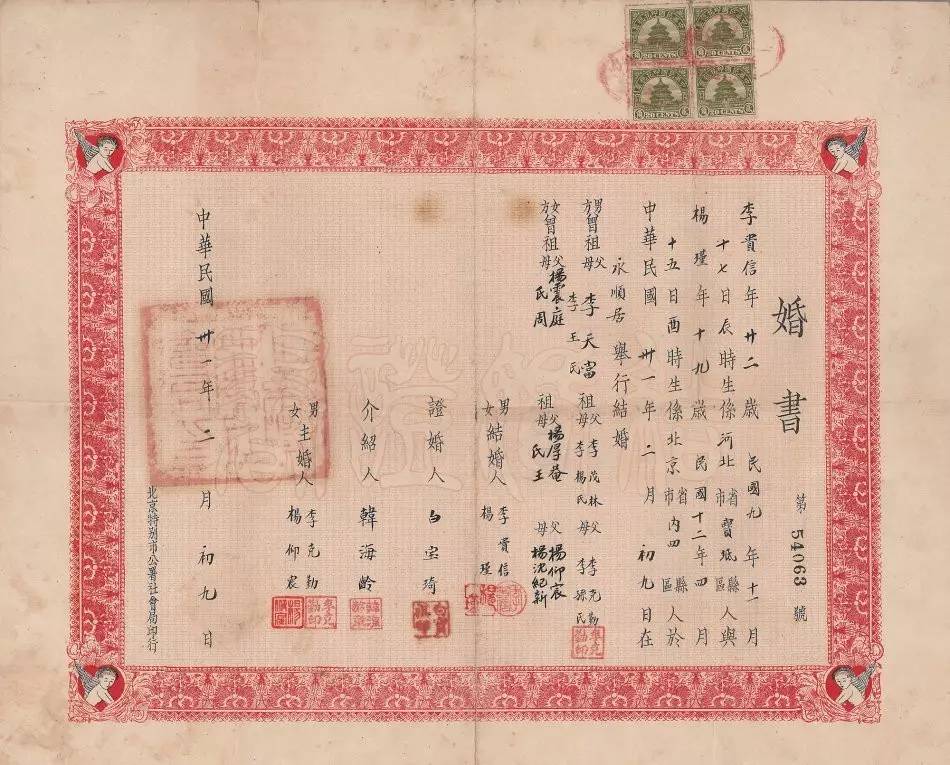 婚書
第 54063 號
李貴信年廿二歲民國九年十一月
十七日辰時生係河北省市寶坻縣區人與
楊瑾年十九歲民國十二年四月
十五日酉時生係北京省市內四縣區人於
中華民國卅一年二月初九日在
永順居舉行結婚
男方曾祖父母李天富李王氏祖父母李茂林李楊氏父母李克勤李孫氏
女方曾祖父母楊震庭氏周祖父母楊厚菴氏王父母楊仰宸楊沈紀新
男女結婚人李貴信楊瑾
證婚人白宝琦
介紹人韓海齡
男女主婚人李克勤楊仰宸
中華民國卅一年二月初九日
北京特別市公署社會局印行
20 CENTS
20 CENTS
20 CENTS
20 CENTS